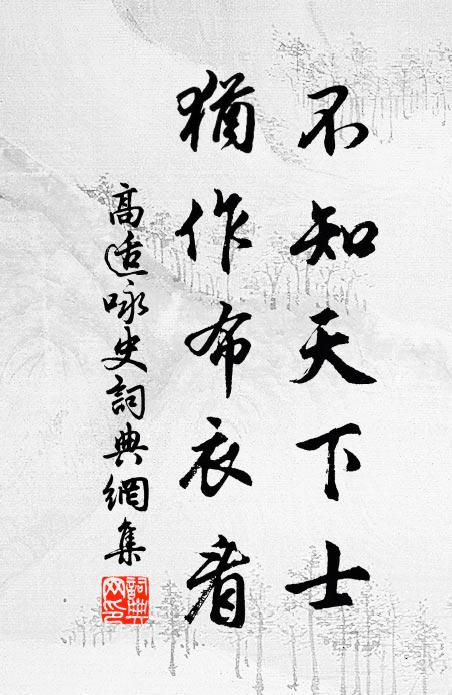 不知天下士
猶作布衣看
高适咏史詞典網集
詞典网印